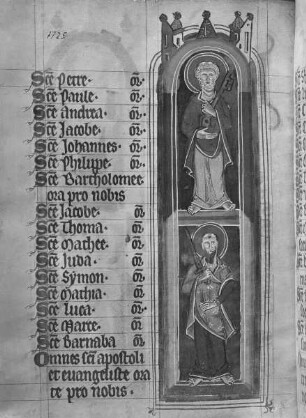 1725
Sc̄e Petre· or̄.
Sc̄e Paule· or̄.
Sc̄e Andrea· or̄.
Sc̄e Jacobe· or̄.
Sc̄e Johannes· or̄.
Sc̄e Philippe· or̄.
Sc̄e Bartholomee
ora pro nobis
Sc̄e Jacobe· or̄
Sc̄e Thoma· or̄
Sc̄e Mathee· or̄
Sc̄e Juda· or̄
Sc̄e Symon· or̄
Sc̄e Mathia· or̄
Sc̄e Luca· or̄
Sc̄e Marce· or̄
Sc̄e Barnaba or̄
Omnes sc̄i apostoli
et euangeliste ora
te pro nobis·